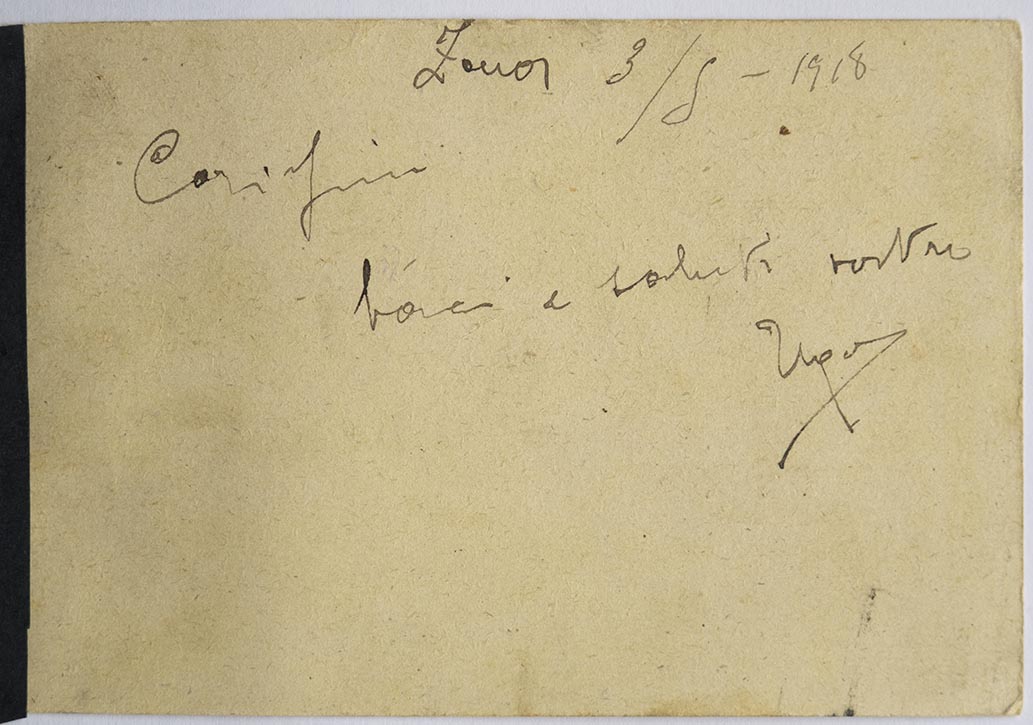 3/5 - 1918
Carissimi
baci e saluti vostro
Ugo